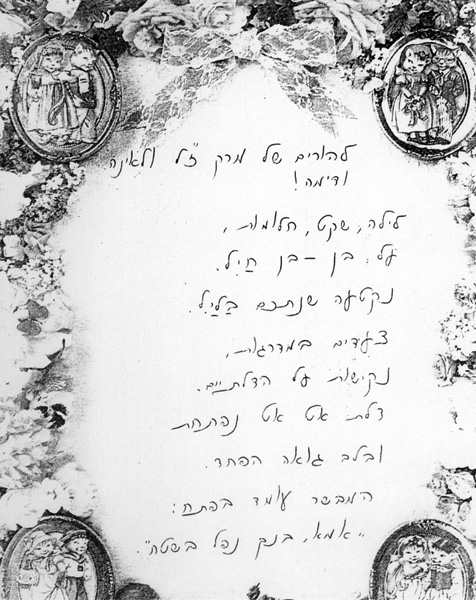 להורים של מרק ז"ל ולאינה
ודימה!
לילה, שקט, חלומות,
על בן – בן חַיִל.
נקטעה שנתכם בַּלַּיִל.
צעדים במדרגות,
נקישות על הדלתיים.
דלת אט אט נפתחת
ובלב גואה הפחד.
המבשר עומד בפתח:
"אמא, בנך נפל בשטח".